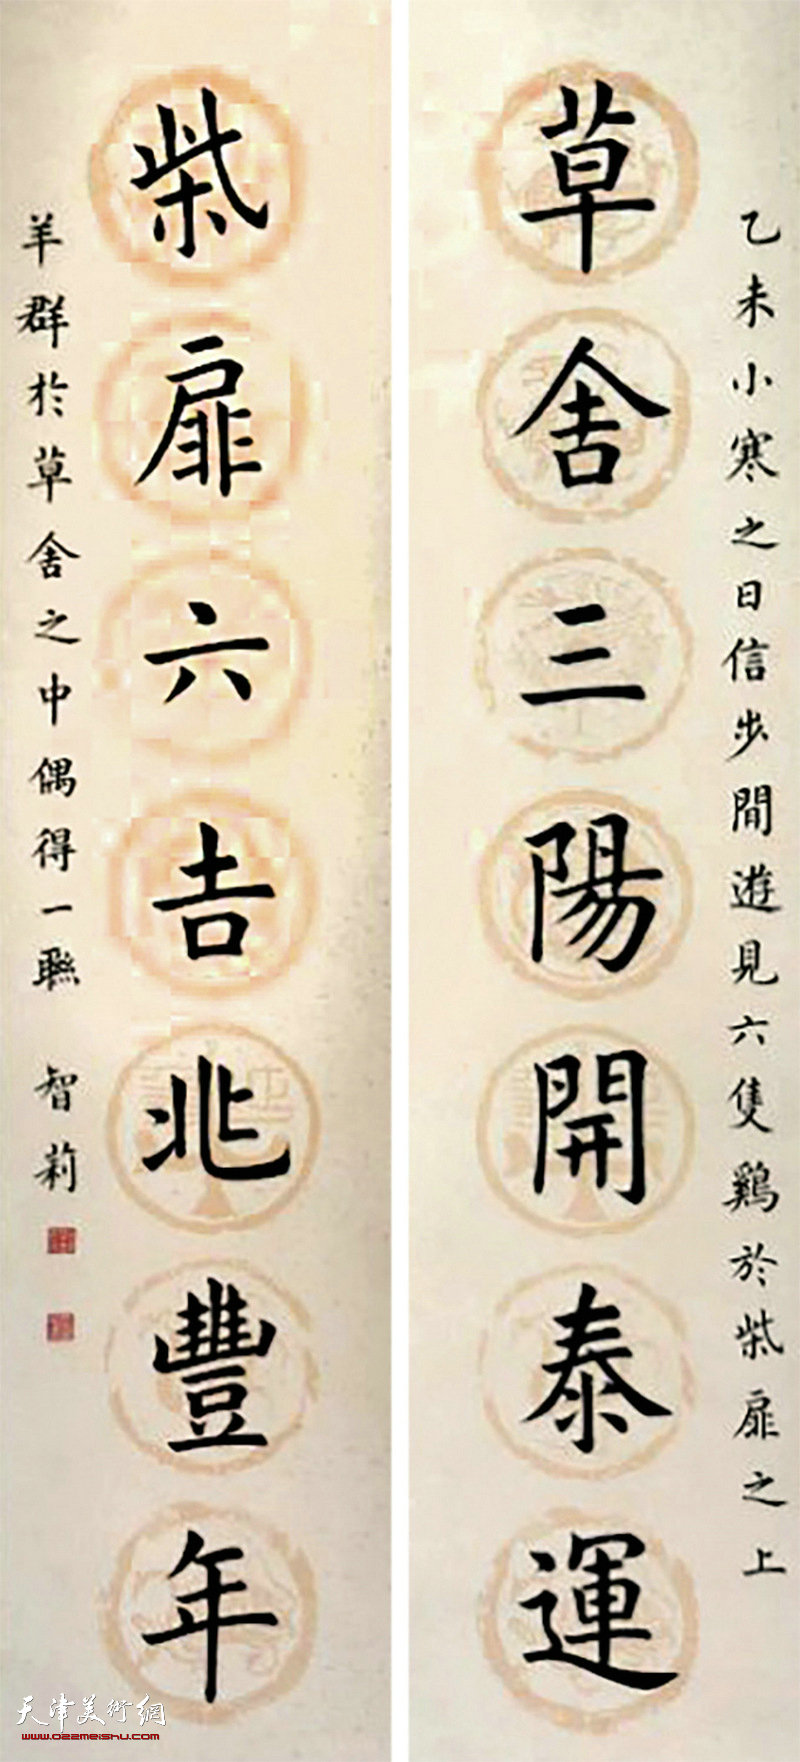 乙未小寒之日信步閒遊見六隻鷄於柴扉之上
草舍三陽開泰運
柴扉六吉兆豐年
羊群於草舍之中偶得一聯 智莉
天津美術網
www.022meishu.com